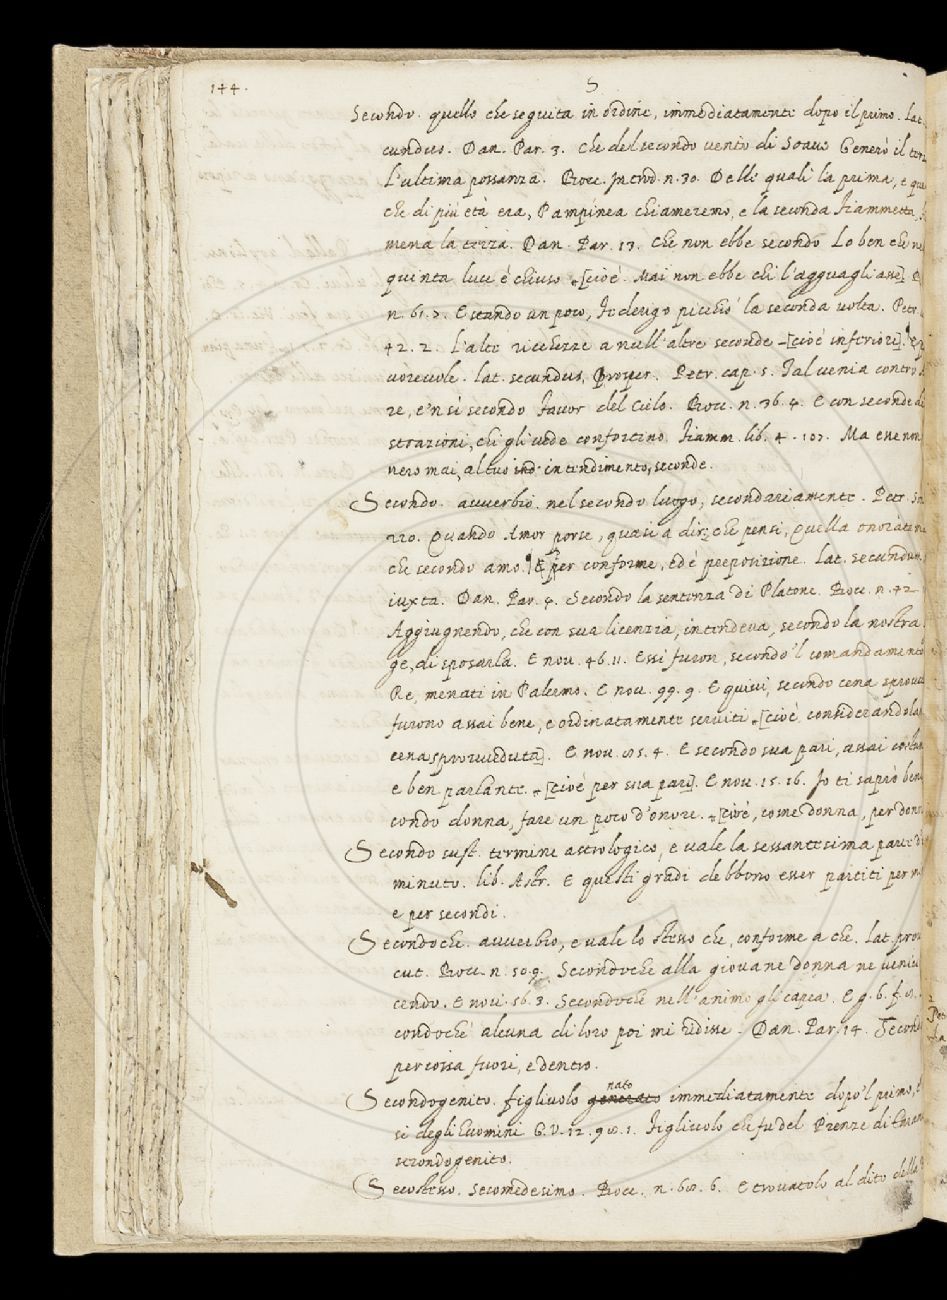 144.
S
Secondo. quello che seguita in ordine, immediatamente dopo il primo. Lat.
cundus. Dan. Par. 3. Che del secondo vento di Soave Generò il ter
l'ultima possanza. Bocc. Introd. n. 30. Delle quali la prima, e que
che di più età era, Pampinea chiameremo, e la seconda Fiammetta,
mena la terza. Dan. Par. 13. Che non ebbe secondo Lo ben che ne
quinta luce è chiuso [cioè. Mai non ebbe chi l'agguagliasse]
n. 61. 3. E stando un poco, Federigo picchiò la seconda volta. Petr.
42. 2. L'alte ricchezze a null'altre seconde [cioè inferiori].
vorevole. lat. secundus, prosper. Petr. cap. 5. Tal venia contro
re, e'n sì secondo favor del Cielo. Bocc. n. 36. 4. E con seconde di
strazioni, chi gli vede confortino. Fiamm. lib. 4. 107. Ma
nero mai, al tuo intendimento, seconde.
Secondo. avverbio. nel secondo luogo, secondariamente. Petr. Son
220. Quando Amor porse, quasi a dir, che pensi, Quella onorata
che secondo amo. E per conforme, ed è preposizione. Lat. secundum,
iuxta. Dan. Par. 4. Secondo la sentenza di Platone. Bocc. n. 42
Aggiugnendo, che con sua licenzia, intendeva, secondo la nostra
ge, di sposarla. E nov. 46. 11. Essi furon, secondo 'l comandamento
Re, menati in Palermo. E nov. 99. 9. E quivi, secondo cena sprovved
furono assai bene, e ordinatamente serviti [cioè considerandola
cena sprovveduta]. E nov. 85. 4. E secondo sua pari, assai costum
e ben parlante [cioè per sua pari]. E nov. 15. 16. Io ti saprò ben
condo donna, fare un poco d'onore. [cioè, come donna, per donn
Secondo sust. termine astrologico, e vale la sessantesima parte d
minuto. lib. Astr. E questi gradi debbono esser partiti per mi
e per secondi.
Secondochè. avverbio, e vale lo stesso che, conforme a che. Lat. prou
cut. Bocc. n. 50. 9. Secondochè alla giovane donna ne veni
cendo. E nov. 16. 3. Secondochè nell'animo gli capea. E g. 6. f. 8.
condochè alcuna di loro poi mi ridisse. Dan. Par. 14. Second
percossa fuori, e dentro.
Secondogenito. figliuolo generato nato immediatamente dopo 'l primo,
si degli Huomini G.V. 12. 98. 1. Figliuolo che fu del Prenze di
secondogenito.
Secostesso. Secomedesimo. Bocc. n. 68. 6. E trovatolo al dito della